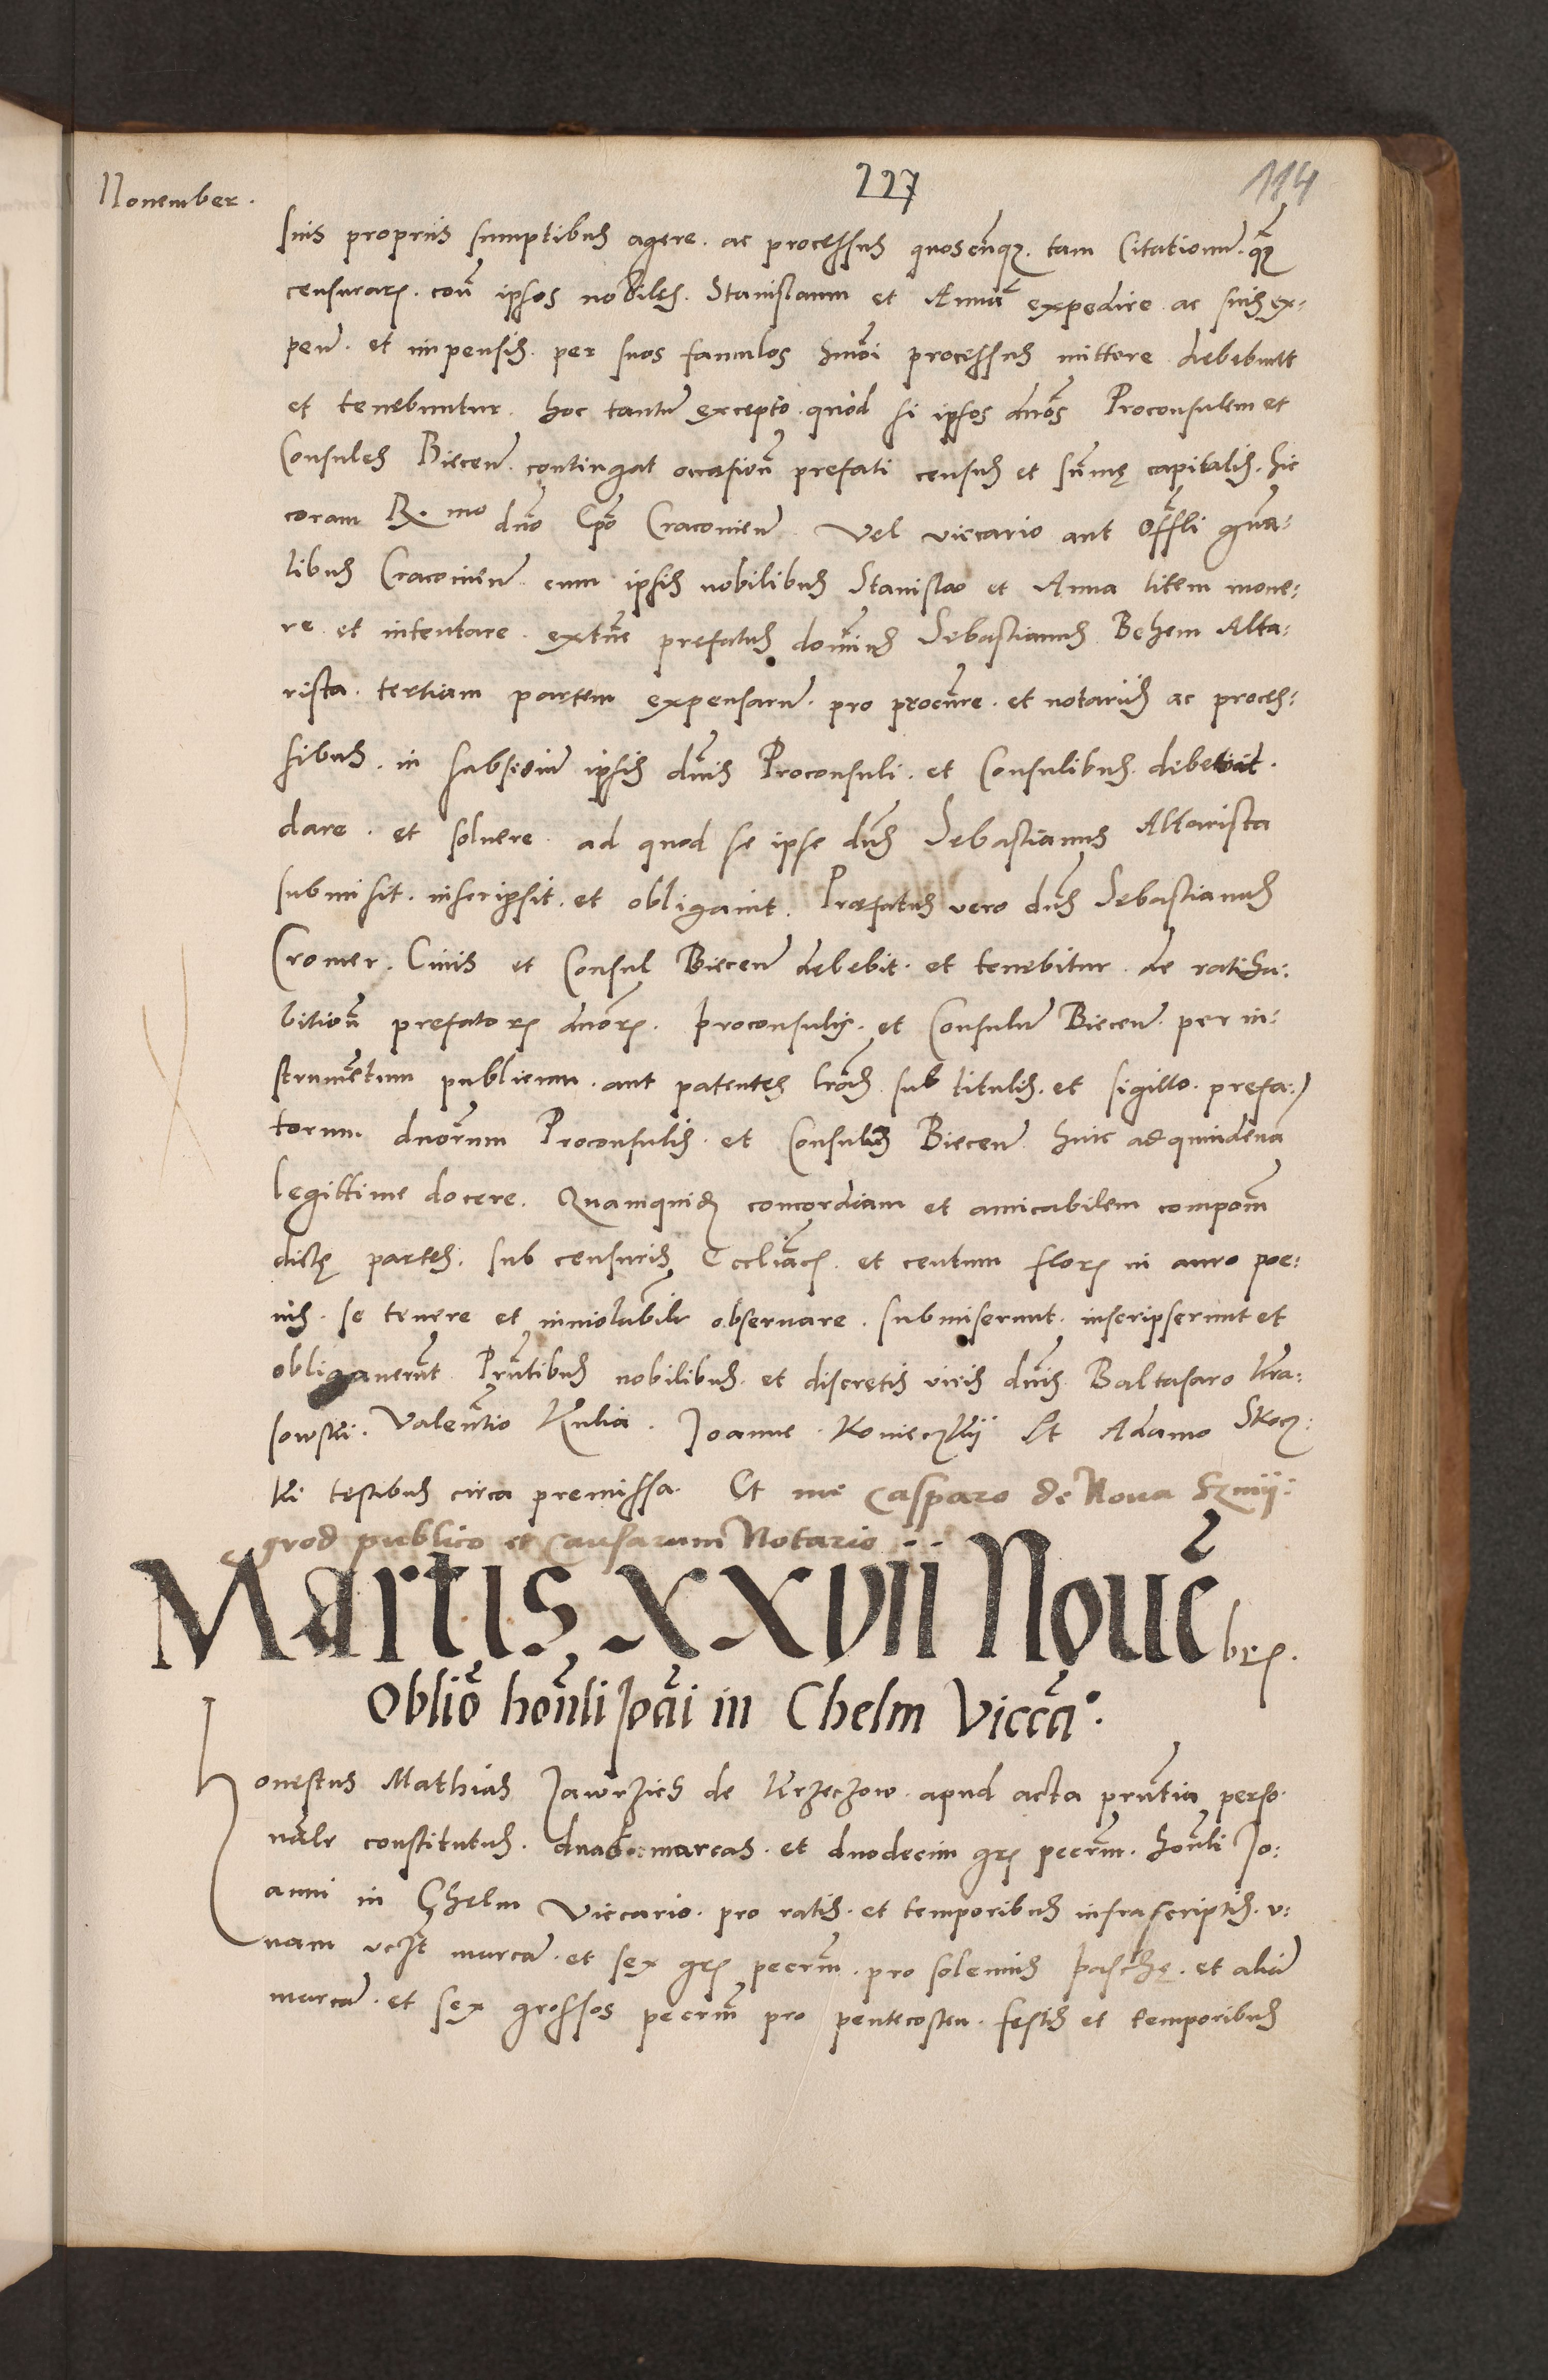 227
114
Nouember.
suis propriis sumptibus agere. ac processus quoscũqz. tam Citationũ. qz̃
censurarꝫ. coñ ipsos nobiles. Stanislaum et Annã expedire ac suis ex-
peñ. et impensis. per suos famulos hmõi processus mittere debebunt
et tenebuntur. hoc tantũ excepto. quod si ipsos dnõs Proconsulem et
Consules Bieceñ. contingat occasioñ prefati census et sum̃ę capitalis. hic
coram R.mo dño Epõ Cracovieñ. Vel viccario aut Offli gña-
libus Cracovieñ. cum ipsis nobilibus Stanislao et Anna litem moue-
re et intentare. extũc prefatus domiñs Sebastianus Behem Alta-
rista. tertiam partem expensarũ. pro procũre. et notariis ac proces-
sibus. in subsidiũ ipsis dñis Proconsuli. et Consulibus. debebit.
dare. et soluere. ad quod se ipse dñs Sebastianus Altarista
submisit. inscripsit. et obligauit. Præfatus vero dñs Sebastianus
Cromer. Ciuis et Consul Bieceñ debebit. et tenebitur. de ratiha-
bitioñ prefatorꝫ dnõrꝫ. proconsulis. et Consulũ Bieceñ. per in-
strumẽtum publicum. aut patentes lrãs sub titulis. et sigillo. prefa-
torum dnõrum Proconsulis. et Consulum Bieceñ. hinc ad quindena
legittime docere. Quamquidẽ concordiam et amicabilem compoñm
dictę partes. sub censuris Eccliãcꝫ. et centum florꝫ in auro poe-
nis. se tenere et inuiolabilr̃ obseruare. submiserunt. inscripserunt et
obligauerũt. Prñtibus nobilibus. et discretis viris dñis. Baltasaro Kra-
sowski. Valentio Kulia. Joanne. Konieczkij Et Adamo Skocz-
ki testibus circa premissa. Et me Casparo de Noua Szmij-
grod publico et Causarum Notario
Martis XXVII Nouẽbrꝫ.
Obliõ hoñli Joãi in Chelm Viccã°.
Honestus Mathias Jawrzicz de Krzeczow. apud acta prñtia perso-
nalr̃ constitutus. duas marcas. et duodecim grꝫ pecrm̃. hoñli Jo-
anni in Chelm Viccario. pro ratis. et temporibus infrascriptis. v-
nam vcꝫt marcã. et sex grꝫ pecrm̃. pro solemniis paschę. et aliã
marcã. et sex grossos pecrm̃ pro pentecosten. festis et temporibus